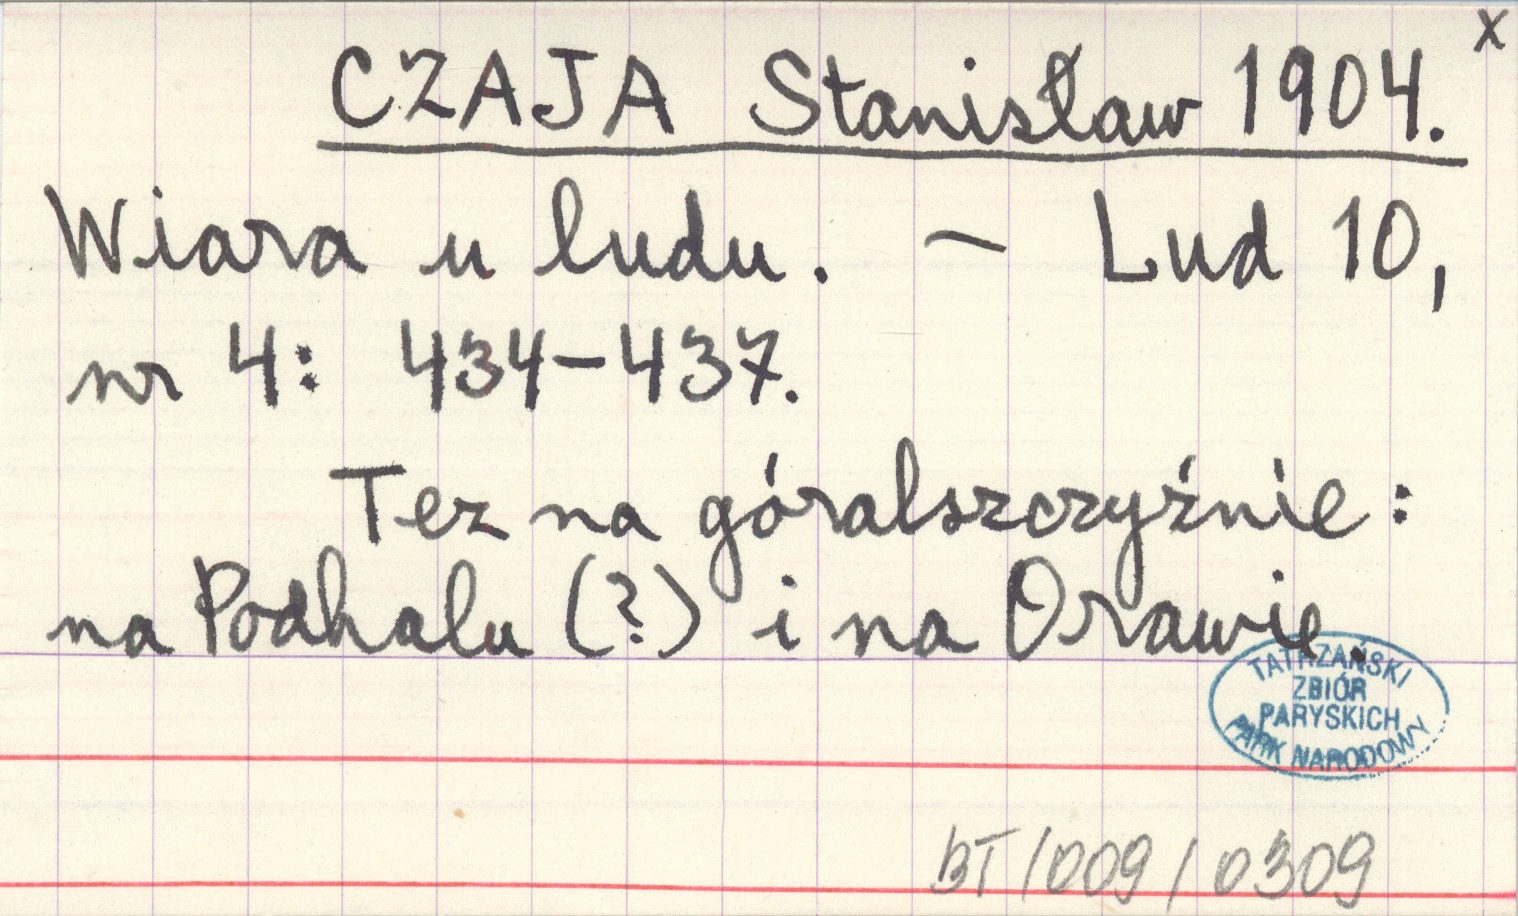 x
CZAJA Stanisław 1904.
Wiara u ludu. – Lud 10,
nr 4: 434–437.
Też na góralszczyźnie:
na Podhalu (?) i na Orawie.
TATRZAŃSKI
ZBIÓR
PARYSKICH
PARK NARODOWY
BT/009/0309